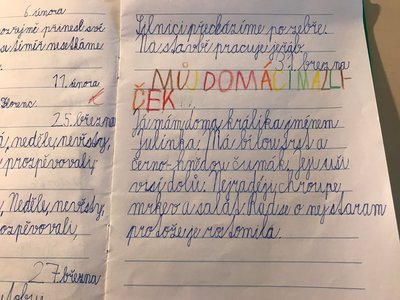 6. února
přinesl své
se téměř nesetkáme
11. února
Florenc.
25. března
neděle, nevěsty,
prozpěvovaly
Neděle, nevěsty,
ozpěvovaly,
27. března
Silnici přecházíme po zebře.
Na stavbě pracuje jeřáb.
31. března
MŮJ DOMÁCÍ MAZLÍ-
ČEK
Já mám doma králíka jménem
Julinka. Má bílou srst a
černo-hnědou čumák. Její uši
visý dolů. Nejraději chroupe
mrkev a salát. Ráda se o nej staram
protože je roztomilá.